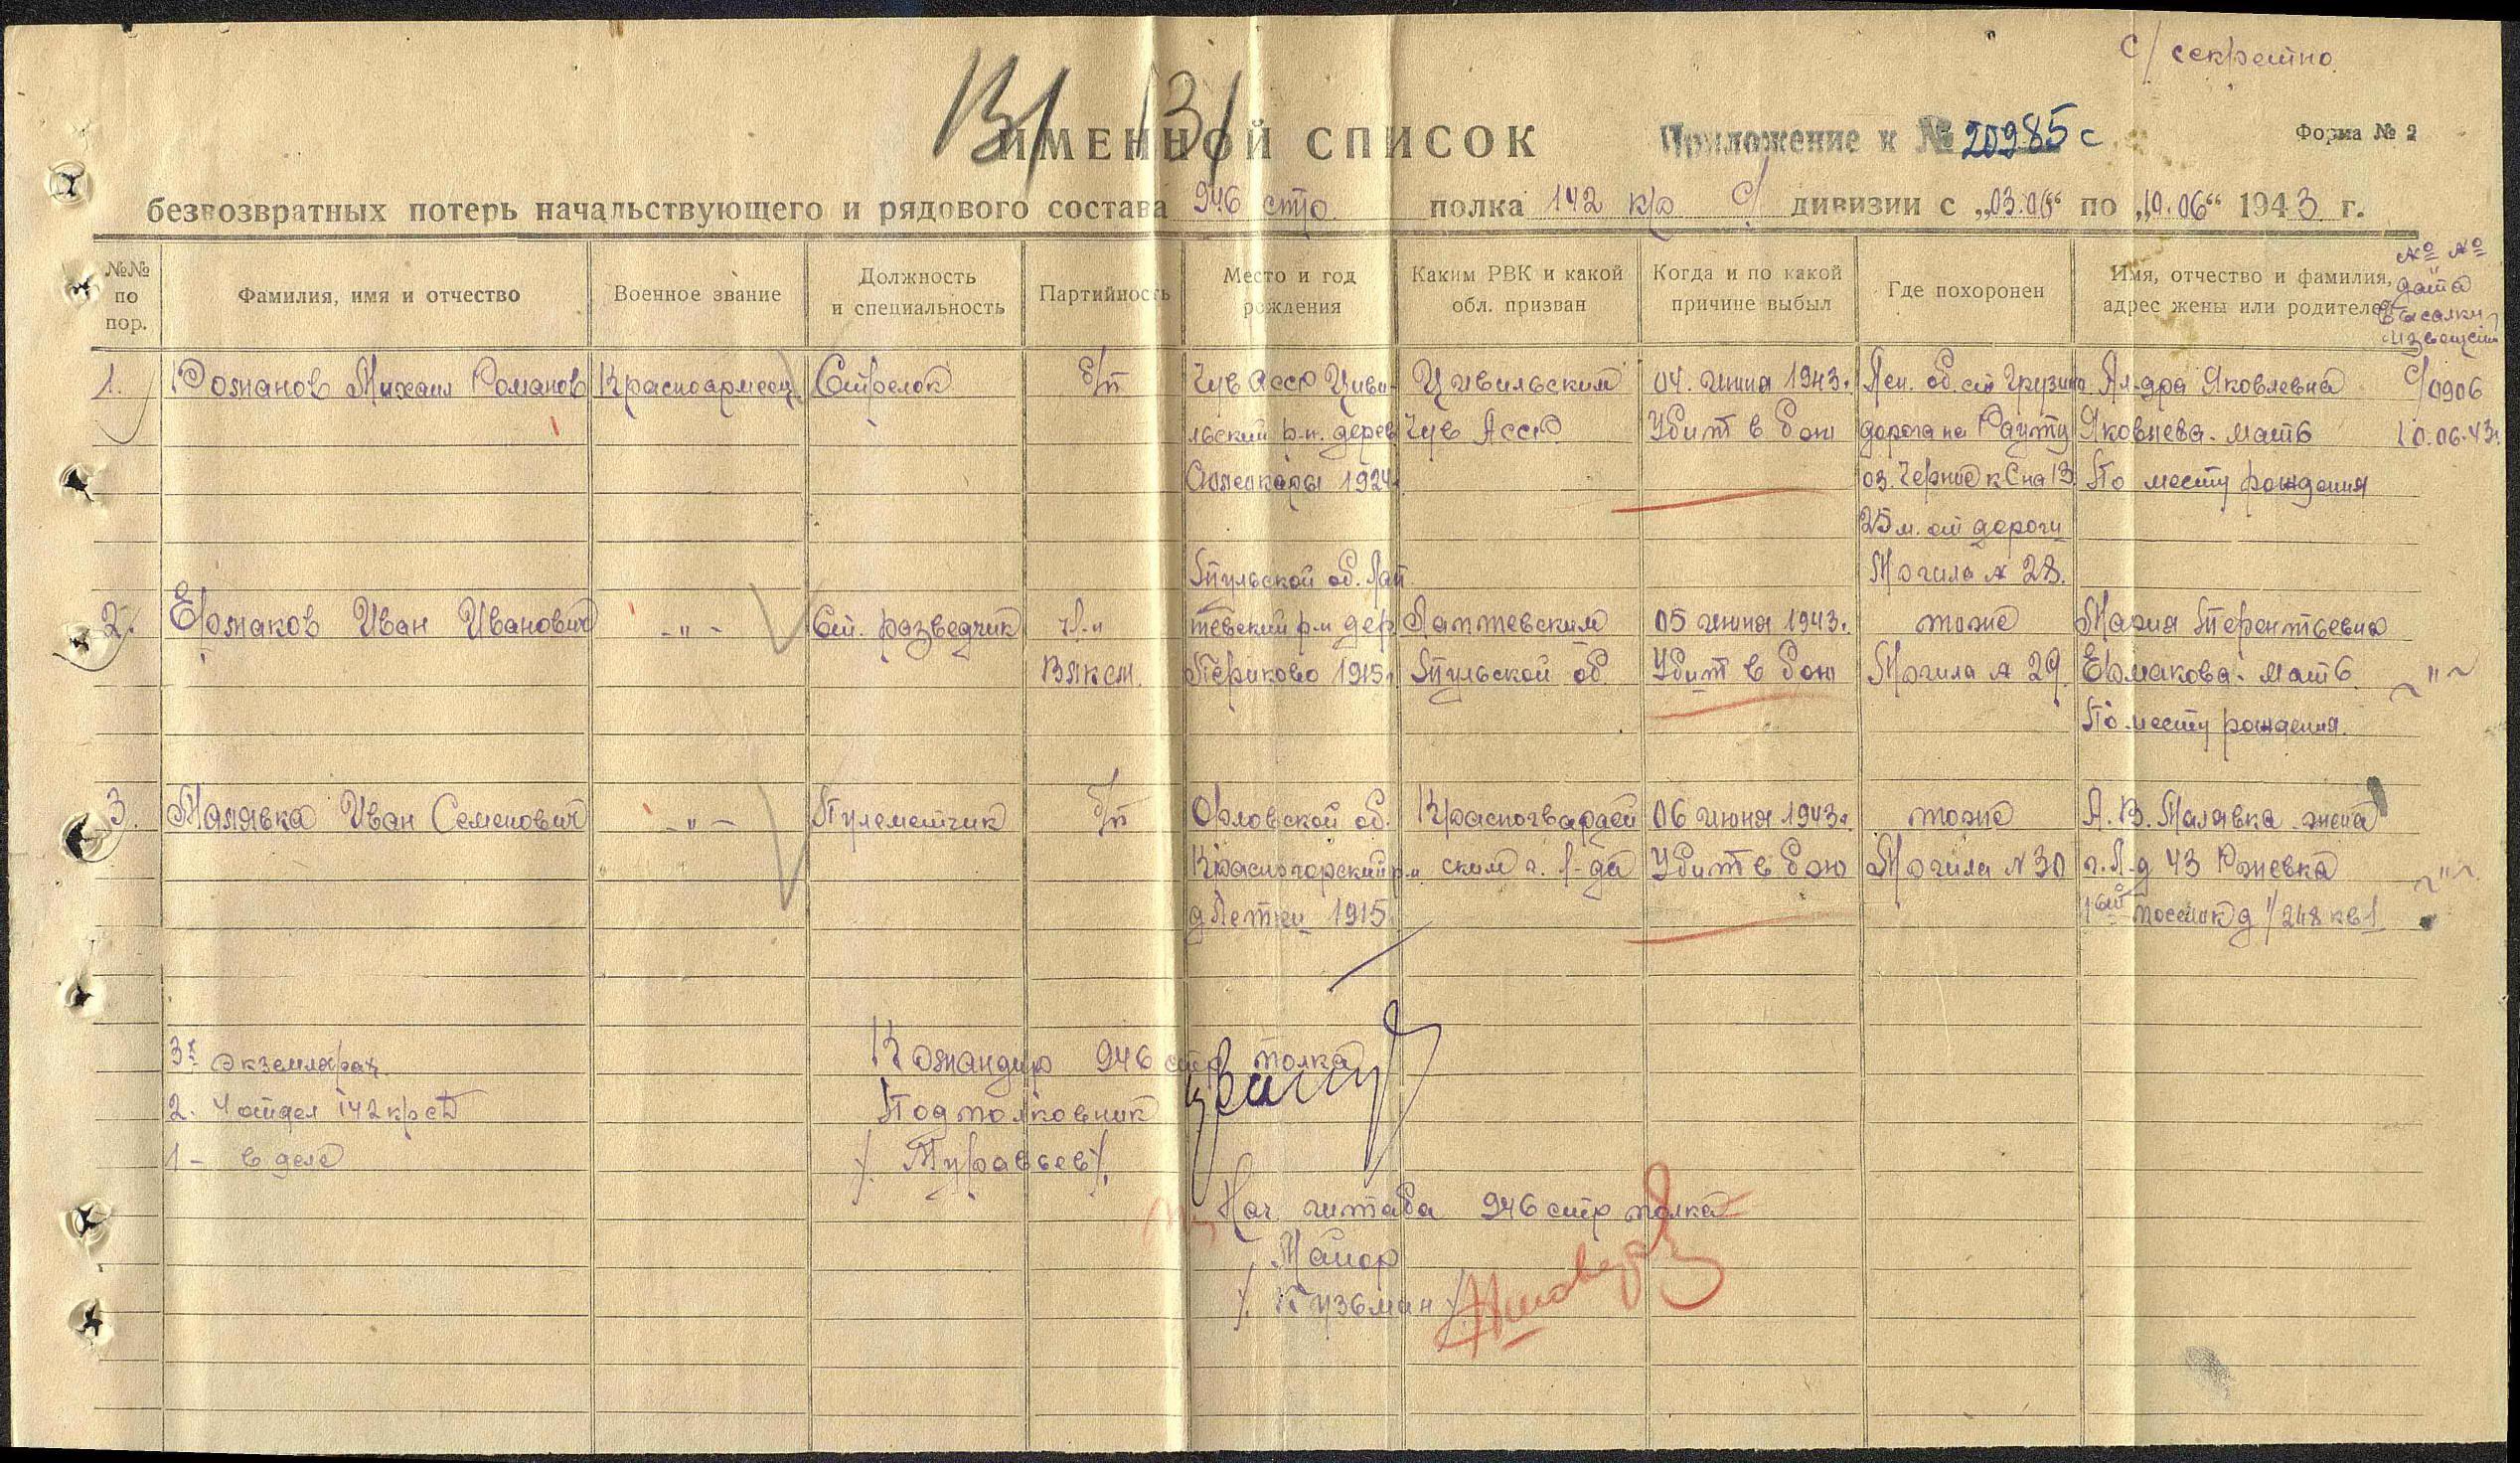 С/ секретно
ИМЕННОЙ СПИСОК
Приложение к № 20985 с
Форма № 2
безвозвратных потерь начальствующего и рядового состава 946 стр. полка 142 к/р с/ дивизии с „03.06“ по „10.06“ 1943 г.
№№ по пор.
Фамилия, имя и отчество
Военное звание
Должность и специальность
Партийность
Место и год рождения
Каким РВК и какой обл. призван
Когда и по какой причине выбыл
Где похоронен
Имя, отчество и фамилия, адрес жены или родителей
№ № дата высылки извещен
1. Романов Михаил Романов Красноармеец Стрелок б/п Чув АССР Циви- Цивильским 04. июня 1943г. Лен. об. ст Грузино Ал-дра Яковлевна с/0906
льский р-н. дерев Чув АССР Убит в бою дорога на Рауту Яковлева. мать 10.06.43г.
1924г. оз. Черное к С на В По месту рождения
25 м. от дороги
Тульской об. Лап Могила № 28.
2. Ермаков Иван Иванович -"- Ст. разведчик чл-н тевский р-н дер Лаптевским 05 июня 1943г. тоже Мария Терентьевна
ВЛКСМ. 1915г. Тульской об Убит в бою Могила № 29. Ермакова. мать -"-
По месту рождения.
3. Малявка Иван Семенович -"- Пулеметчик б/п Орловской об. Красногвардей 06 июня 1943г. тоже А. В. Малявка жена
Красногорский р-н ским г. Л-да Убит в бою Могила № 30 г. Л-д 43 Ржевка -"-
д Летки 1915 1ый поселок д 1/248 кв 1
3х экземплярах Командир 946 стр полка
2. 4 отдел 142 кр сд Подполковник
1 - в дело /. Муравьев /.
Нач. штаба 946 стр полка
Майор
/. Кузьмин /.